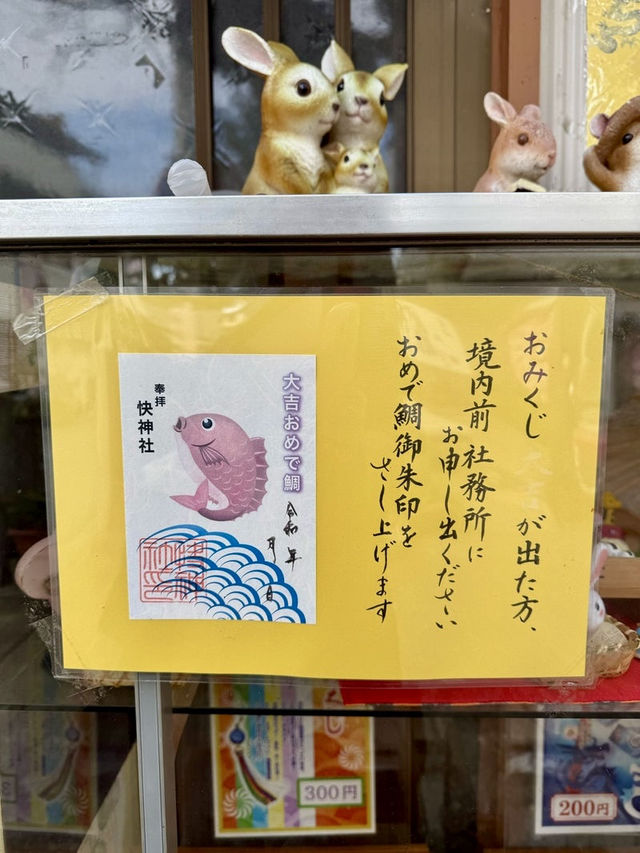 おみくじ が出た方、
境内前 社務所に
お申し出ください
おめで鯛御朱印を
さし上げます
大吉おめで鯛
奉拝
快神社
令和 年
月 日
300円
200円